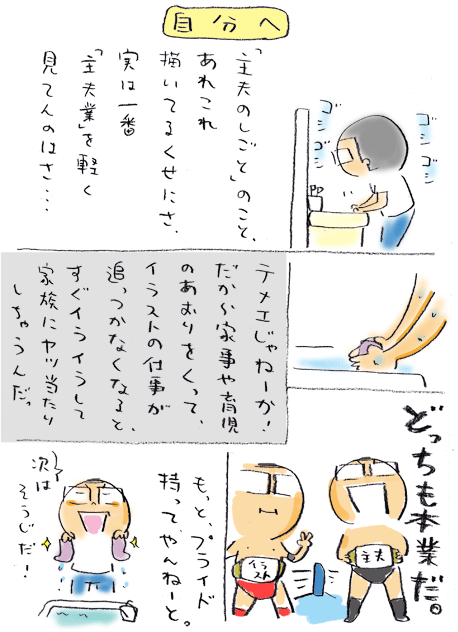 自分へ
「主夫のしごと」のこと、
あれこれ
描いてるくせにさ、
実は一番
「主夫業」を軽く
見てんのはさ・・・
ゴシ
ゴシ
ゴシ
テメエじゃねーか!
だから家事や育児
のあおりをくって、
イラストの仕事が
追っつかなくなると、
すぐイライラして
家族にヤツ当たり
しちゃうんだっ
どっちも本業だ。
主夫
イラスト
もっと、プライド
持って、やんねーと。
次は
そうじだー!